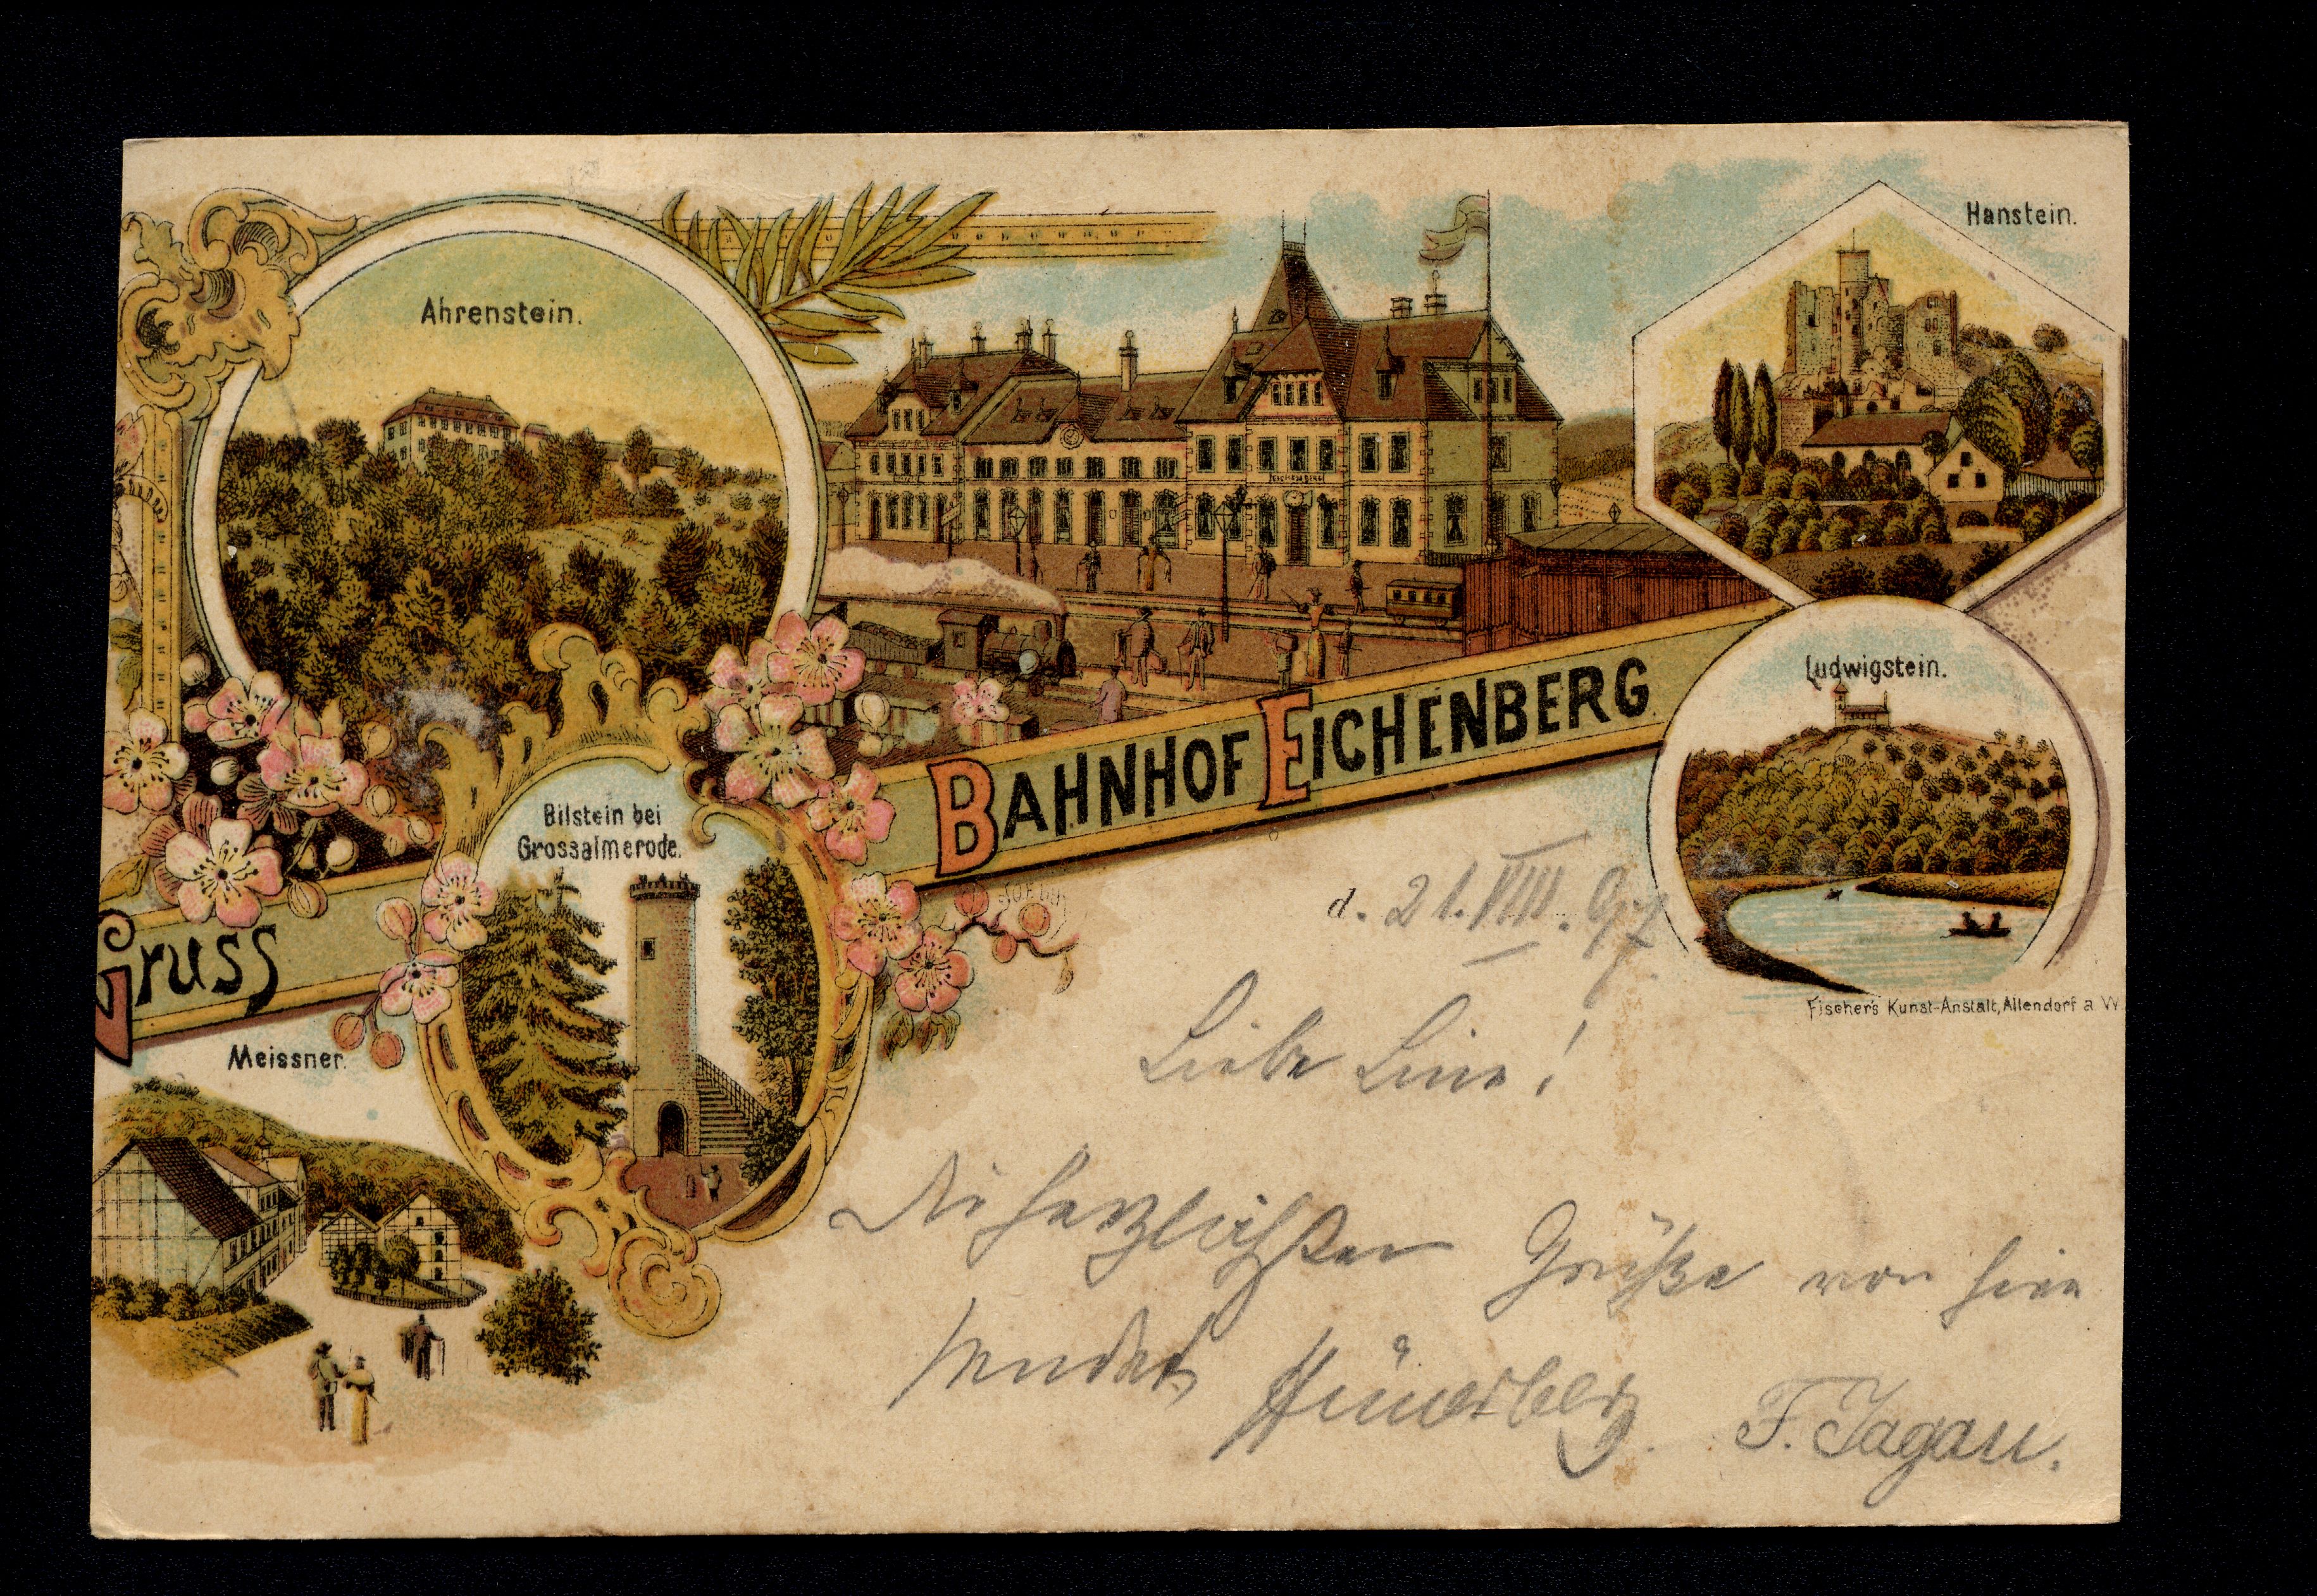 Ahrenstein.
Hanstein.
EICHENBERG
Ludwigstein.
Bilstein bei
Grossalmerode.
Gruss
BAHNHOF EICHENBERG
Meissner.
Fischer's Kunst-Anstalt, Allendorf a. W
d. 21.VIII.97.
Liebe Line!
Die herzlichsten Grüße von hier
sendet Hünerberg. F.